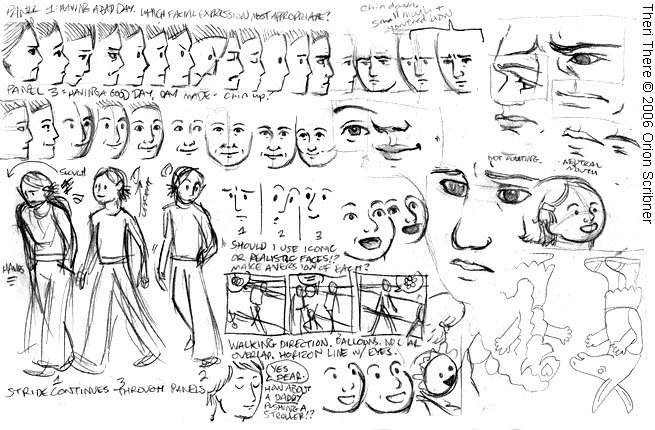 PANEL 1: HAVING A BAD DAY. WHICH FACIAL EXPRESSION MOST APPROPRIATE?
Chin down,
small mouth +
PANEL 3: HAVING A GOOD DAY, DAY MADE - chin up?
NOT POUTING.
NEUTRAL
MOUTH
SLOUCH
HANDS
1
2
3
SHOULD I USE ICONIC
OR REALISTIC FACES!?
MAKE A VERSION OF EACH?
WALKING DIRECTION. BALLOONS. NO CHAR
OVERLAP. HORIZON LINE W/ EYES.
1
3
2
STRIDE CONTINUES THROUGH PANELS
YES
DEAR.
HOW ABOUT
A DADDY
PUSHING A
STROLLER!?
Teri There © 2006 Orion Scribner